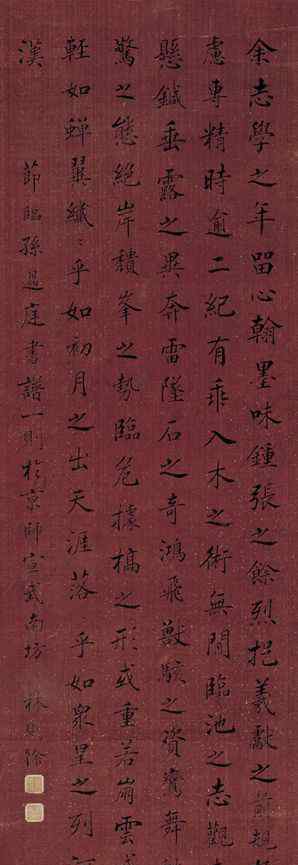 余志學之年留心翰墨味鍾張之餘烈挹羲獻之前規
慮專精時逾二紀有乖入木之術無間臨池之志觀
懸鍼垂露之異奔雷墜石之奇鴻飛獸駭之資鸞舞
驚之態絕岸頹峯之勢臨危據槁之形或重若崩雲或
輕如蟬翼纖纖乎如初月之出天涯落落乎如衆星之列
漢
節臨孫過庭書譜一則於京師宣武南坊 林則徐